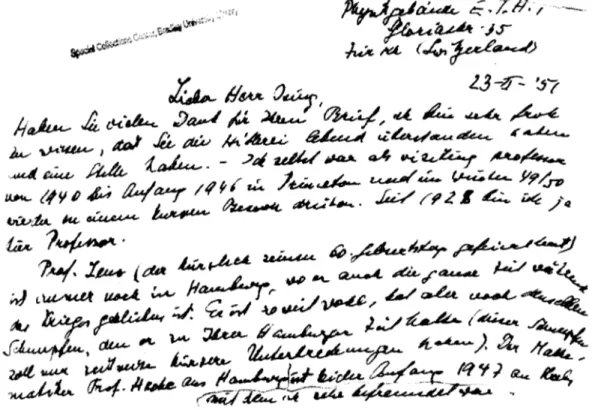 Special Collections Center, Bradley University Library
Physikgebäude E.T.H.
Gloriastr. 35
Zürich (Switzerland)
23-II-'51
Lieber Herr Ising,
Haben Sie vielen Dank für Ihren Brief, ich bin sehr froh
zu wissen, daß Sie die Hitlerei lebend überstanden haben
und eine Stelle haben. – Ich selbst war als visiting professor
von 1940 bis Anfang 1946 in Princeton und im Winter 49/50
wieder zu einem kurzen Besuch drüben. Seit 1928 bin ich ja
hier Professor.
Prof. Lenz (der kürzlich seinen 60. Geburtstag gefeiert hat)
ist immer noch in Hamburg, wo er auch die ganze Zeit während
des Krieges geblieben ist. Es ist soweit wohl, hat aber noch denselben
Schnupfen, den er zu Ihrer Hamburger Zeit hatte (dieser Schnupfen
soll nur zeitweise kürzere Unterbrechungen haben). Der Mathe-
matiker Prof. Hecke aus Hamburg ist leider Anfang 1947 an Krebs
(mit dem ich sehr befreundet war